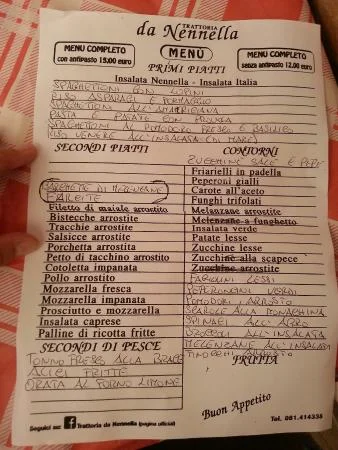 TRATTORIA
da Nennella
MENU COMPLETO
con antipasto 15.00 euro
MENÙ
MENU COMPLETO
senza antipasto 12.00 euro
PRIMI PIATTI
Insalata Nennella - Insalata Italia
SPAGHETTONI CON LUPINI
RISO ASPARAGI E FORMAGGIO
SPAGHETTONI ALL'AMATRICIANA
PASTA E PATATE CON PROVOLA
SPAGHETTONI AL POMODORO FRESCO E BASILICO
RISO VENERE ALL'INSALATA (DI MARE)
SECONDI PIATTI
BARCHETTE DI MELENZANE
FARCITE
Filetto di maiale arrostito
Bistecche arrostite
Tracchie arrostite
Salsicce arrostite
Porchetta arrostita
Petto di tacchino arrostito
Cotoletta impanata
Pollo arrostito
Mozzarella fresca
Mozzarella impanata
Prosciutto e mozzarella
Insalata caprese
Palline di ricotta fritte
SECONDI DI PESCE
TONNO FRESCO ALLA BRACE
ALICI FRITTE
ORATA AL FORNO LIMONE
CONTORNI
ZUCCHINE SALE E PEPE
Friarielli in padella
Peperoni gialli
Carote all'aceto
Funghi trifolati
Melanzane arrostite
Melanzane a funghetto
Insalata verde
Patate lesse
Zucchine lesse
Zucchine alla scapece
Zucchine arrostite
FAGIOLINI LESSI
PEPERONCINI VERDI
POMODORI ARROSTO
SCAROLE ALLA MONACHINA
SPINACI ALL'AGRO
BROCCOLI ALL'INSALATA
MELENZANE ALL'INSALATA
FINOCCHI
FRUTTA
Buon Appetito
Seguici su: f Trattoria da Nennella (pagina ufficial)
Tel. 081.414338